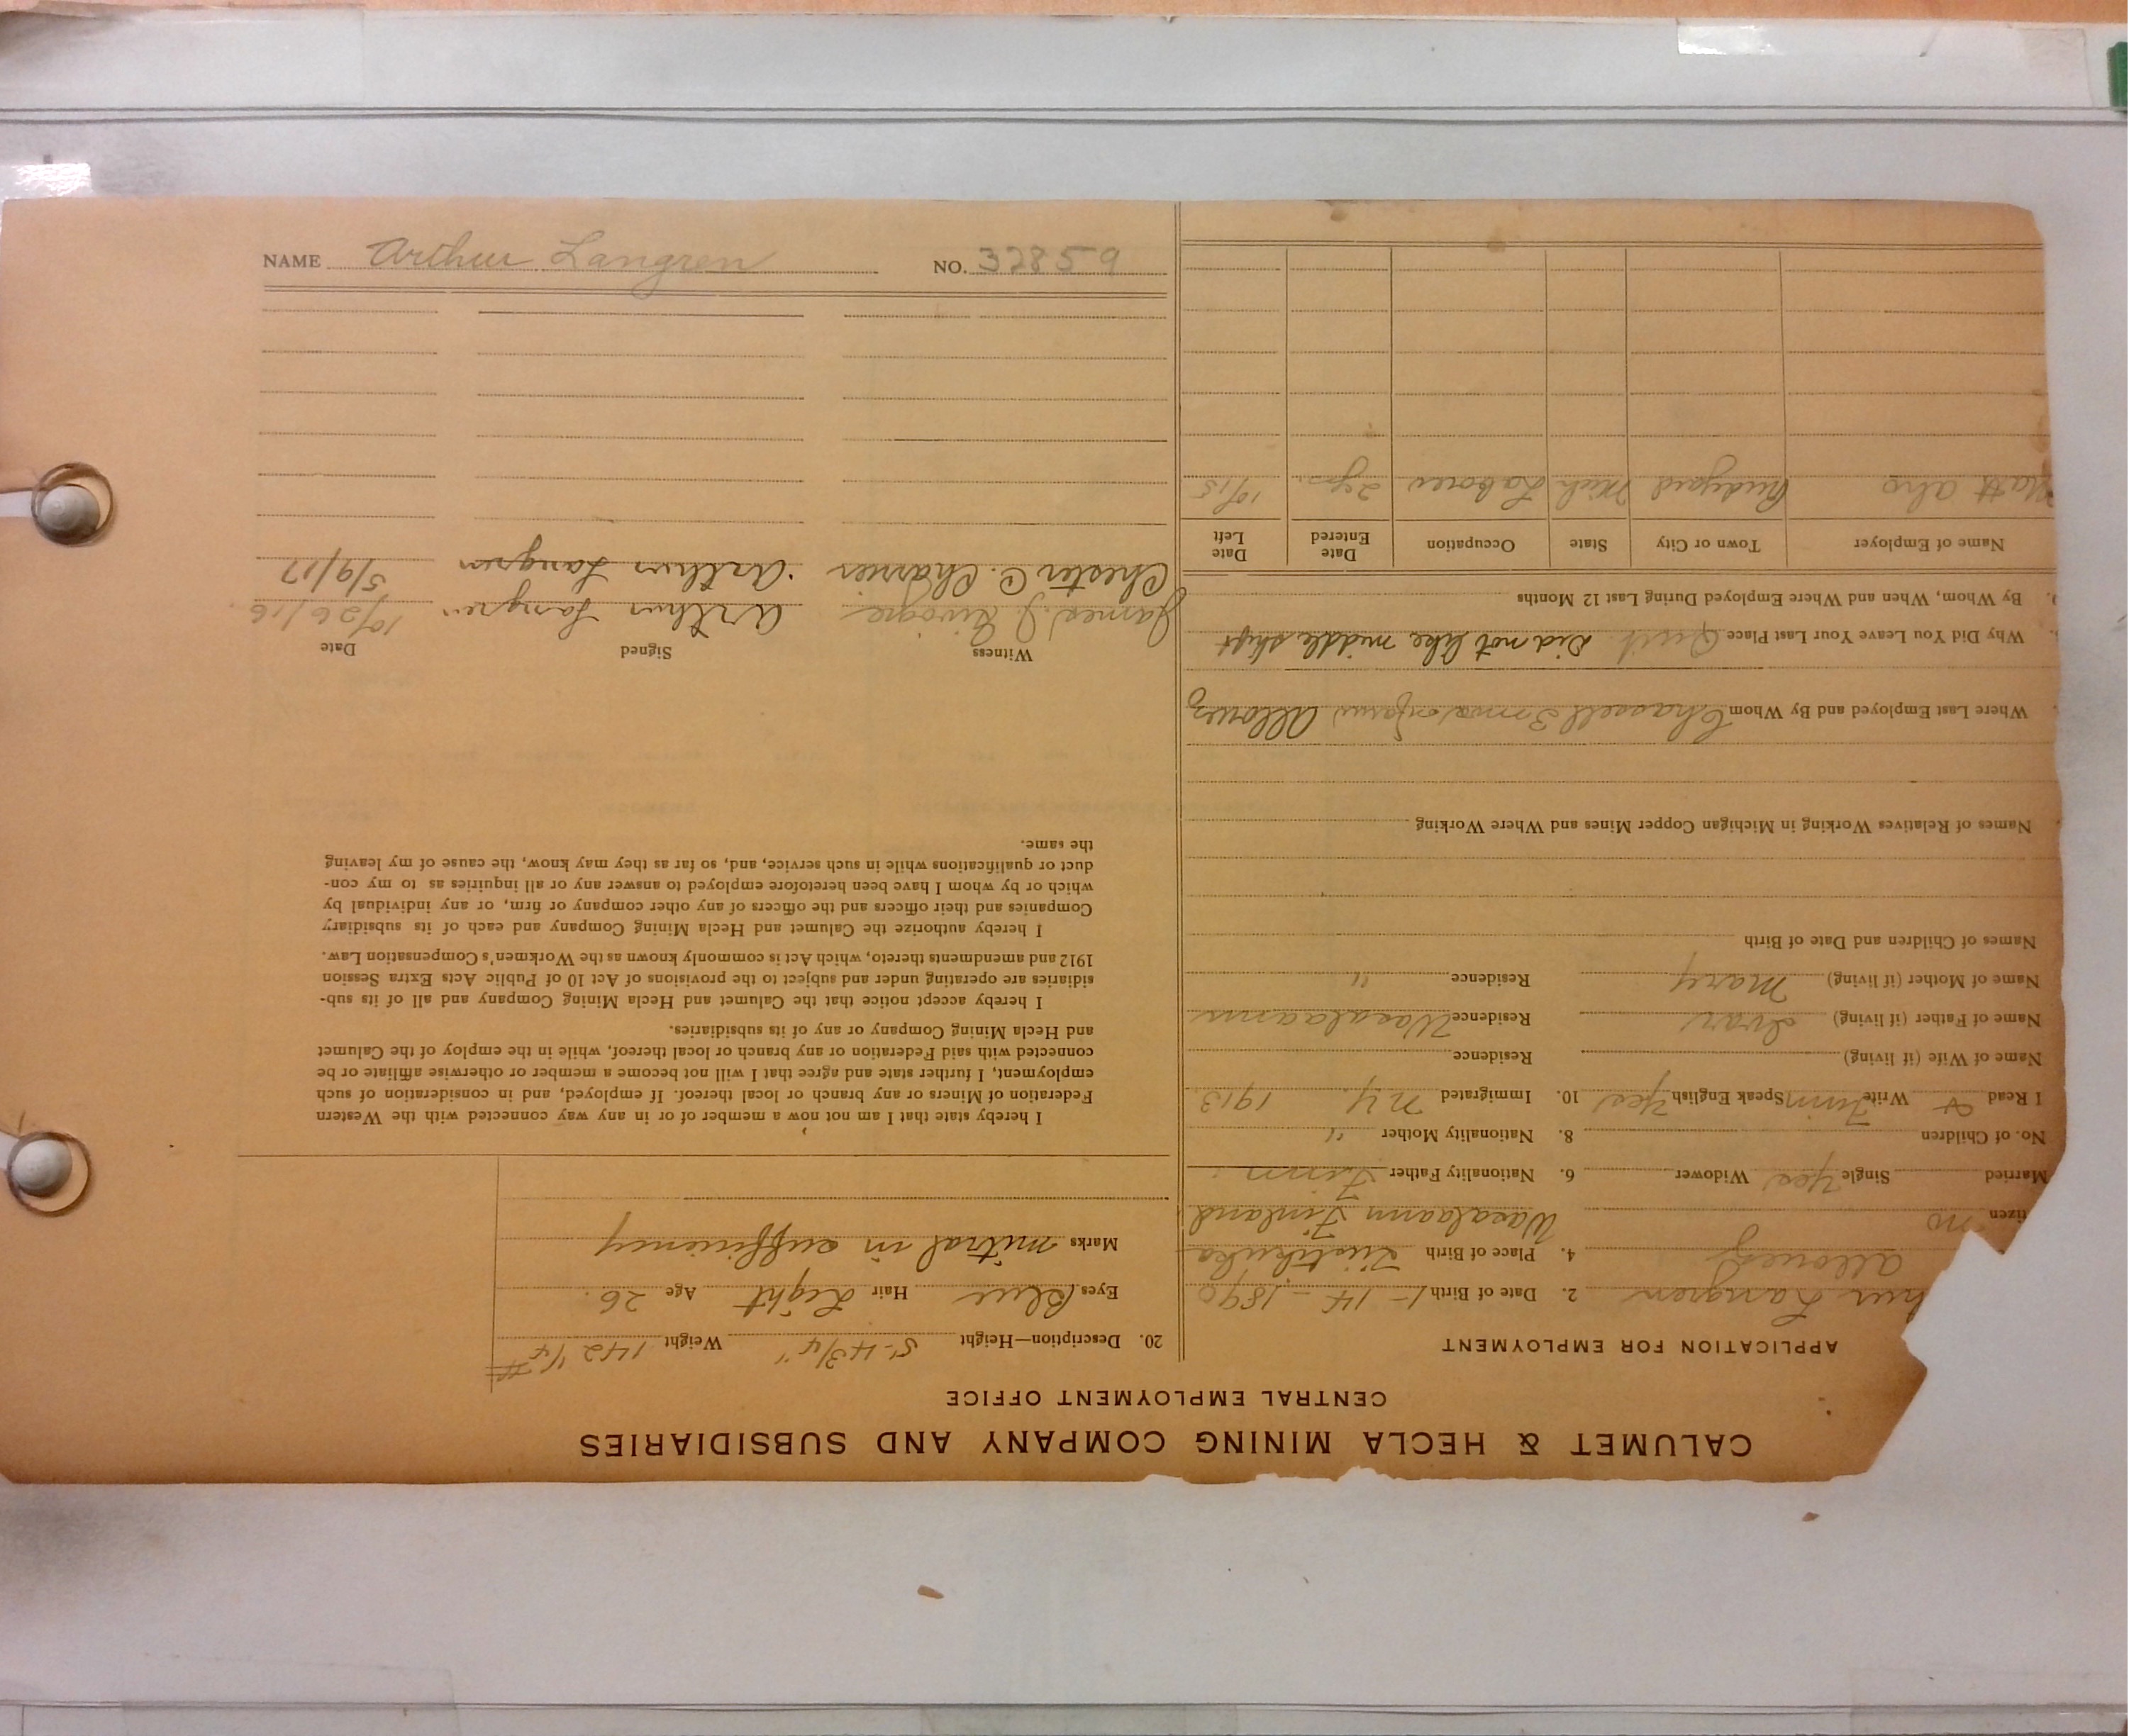 CALUMET & HECLA MINING COMPANY AND SUBSIDIARIES
CENTRAL EMPLOYMENT OFFICE
APPLICATION FOR EMPLOYMENT
hur Langren 2. Date of Birth 1-14-1890
Allouez 4. Place of Birth
tizen no Wasalaann Finland
Married Single Yes Widower 6. Nationality Father Finn
No. of Children 8. Nationality Mother "
I Read & Write Finn Speak English Yes 10. Immigrated N.Y. 1913
Name of Wife (if living) Residence
Name of Father (if living) Ivar Residence Wasalaann
Name of Mother (if living) Mary Residence "
Names of Children and Date of Birth
Names of Relatives Working in Michigan Copper Mines and Where Working
Where Last Employed and By Whom Chassell 3 mo on farm Allouez
Why Did You Leave Your Last Place Quit Did not like middle shift
By Whom, When and Where Employed During Last 12 Months
Name of Employer Town or City State Occupation Date Entered Date Left
Matt Aho Rudyard Mich Laborer 2 yrs. 10/15
20. Description—Height 5'-4 3/4" Weight 142 1/4 #
Eyes Blue Hair Light Age 26.
Marks mitral in sufficiency
I hereby state that I am not now a member of or in any way connected with the Western
Federation of Miners or any branch or local thereof. If employed, and in consideration of such
employment, I further state and agree that I will not become a member or otherwise affiliate or be
connected with said Federation or any branch or local thereof, while in the employ of the Calumet
and Hecla Mining Company or any of its subsidiaries.
I hereby accept notice that the Calumet and Hecla Mining Company and all of its sub-
sidiaries are operating under and subject to the provisions of Act 10 of Public Acts Extra Session
1912 and amendments thereto, which Act is commonly known as the Workmen's Compensation Law.
I hereby authorize the Calumet and Hecla Mining Company and each of its subsidiary
Companies and their officers and the officers of any other company or firm, or any individual by
which or by whom I have been heretofore employed to answer any or all inquiries as to my con-
duct or qualifications while in such service, and, so far as they may know, the cause of my leaving
the same.
Witness Signed Date
James J. Arthur Langren 10/26/16
Chester C. Charrier Arthur Langren 5/9/17
NAME Arthur Langren NO. 32859